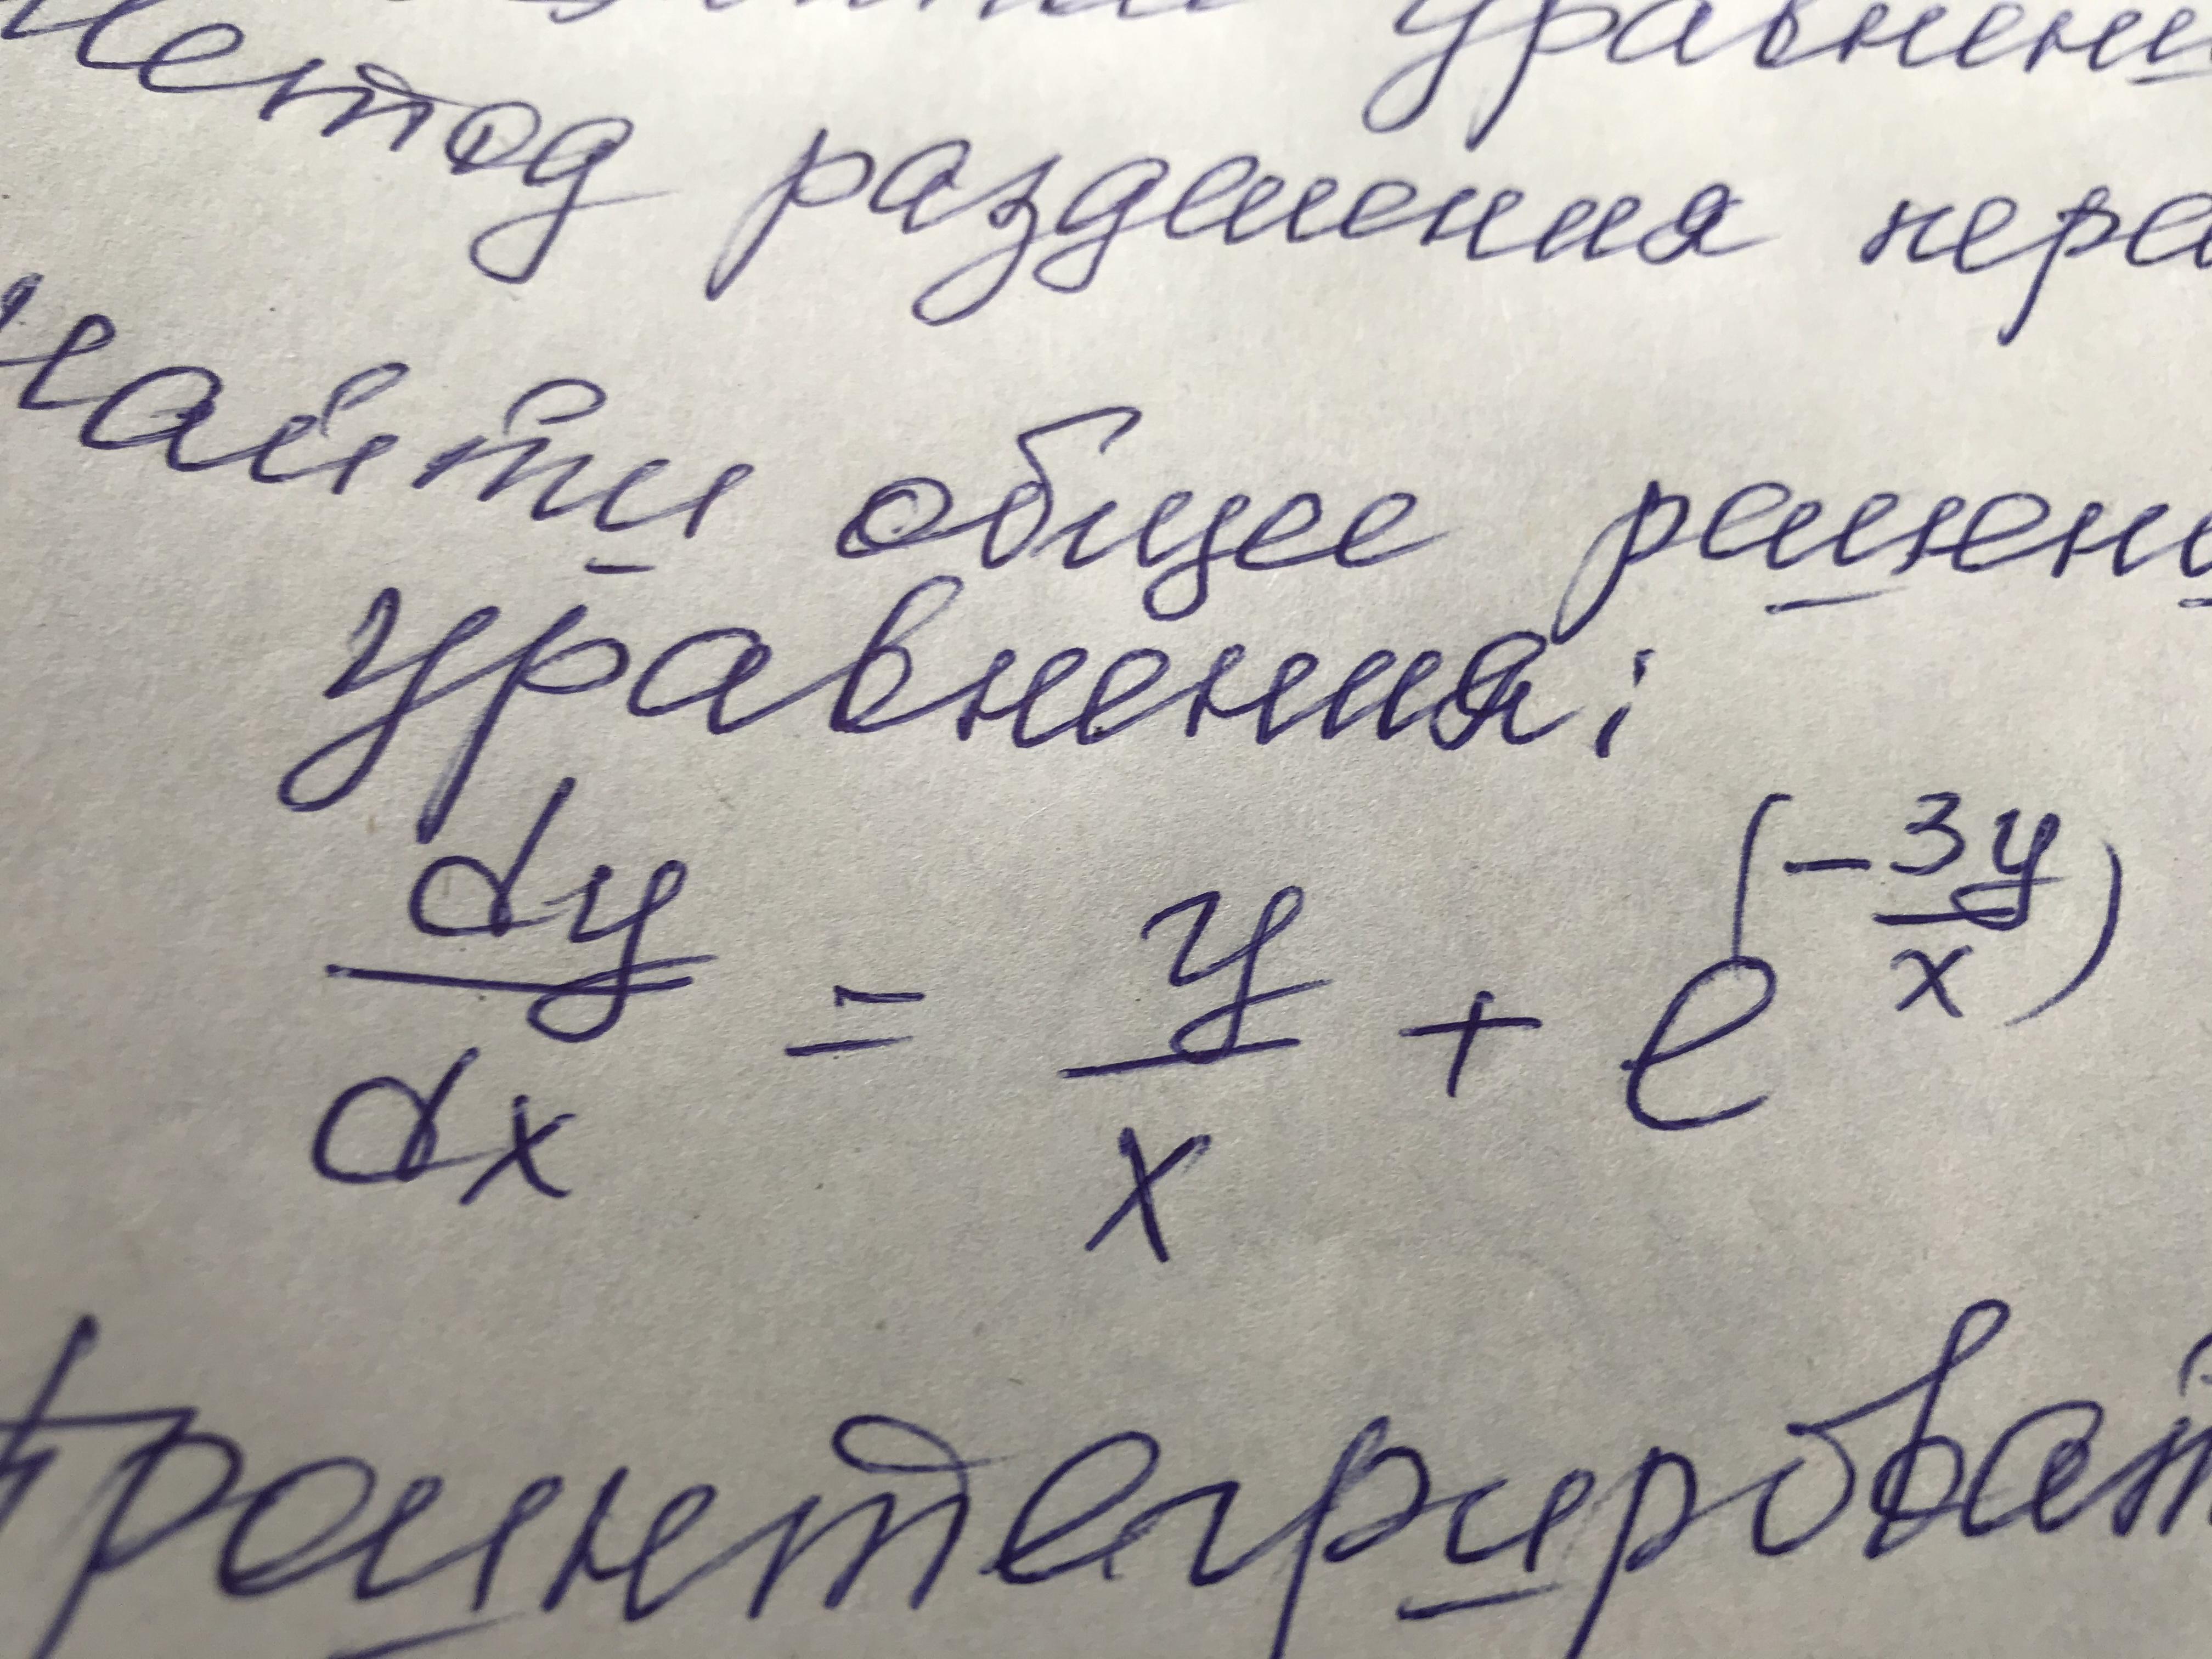 уравнени
Метод разделения пере
Найти общее решени
уравнения:
dy/dx = y/x + e^(-3y/x)
Проинтегрироват